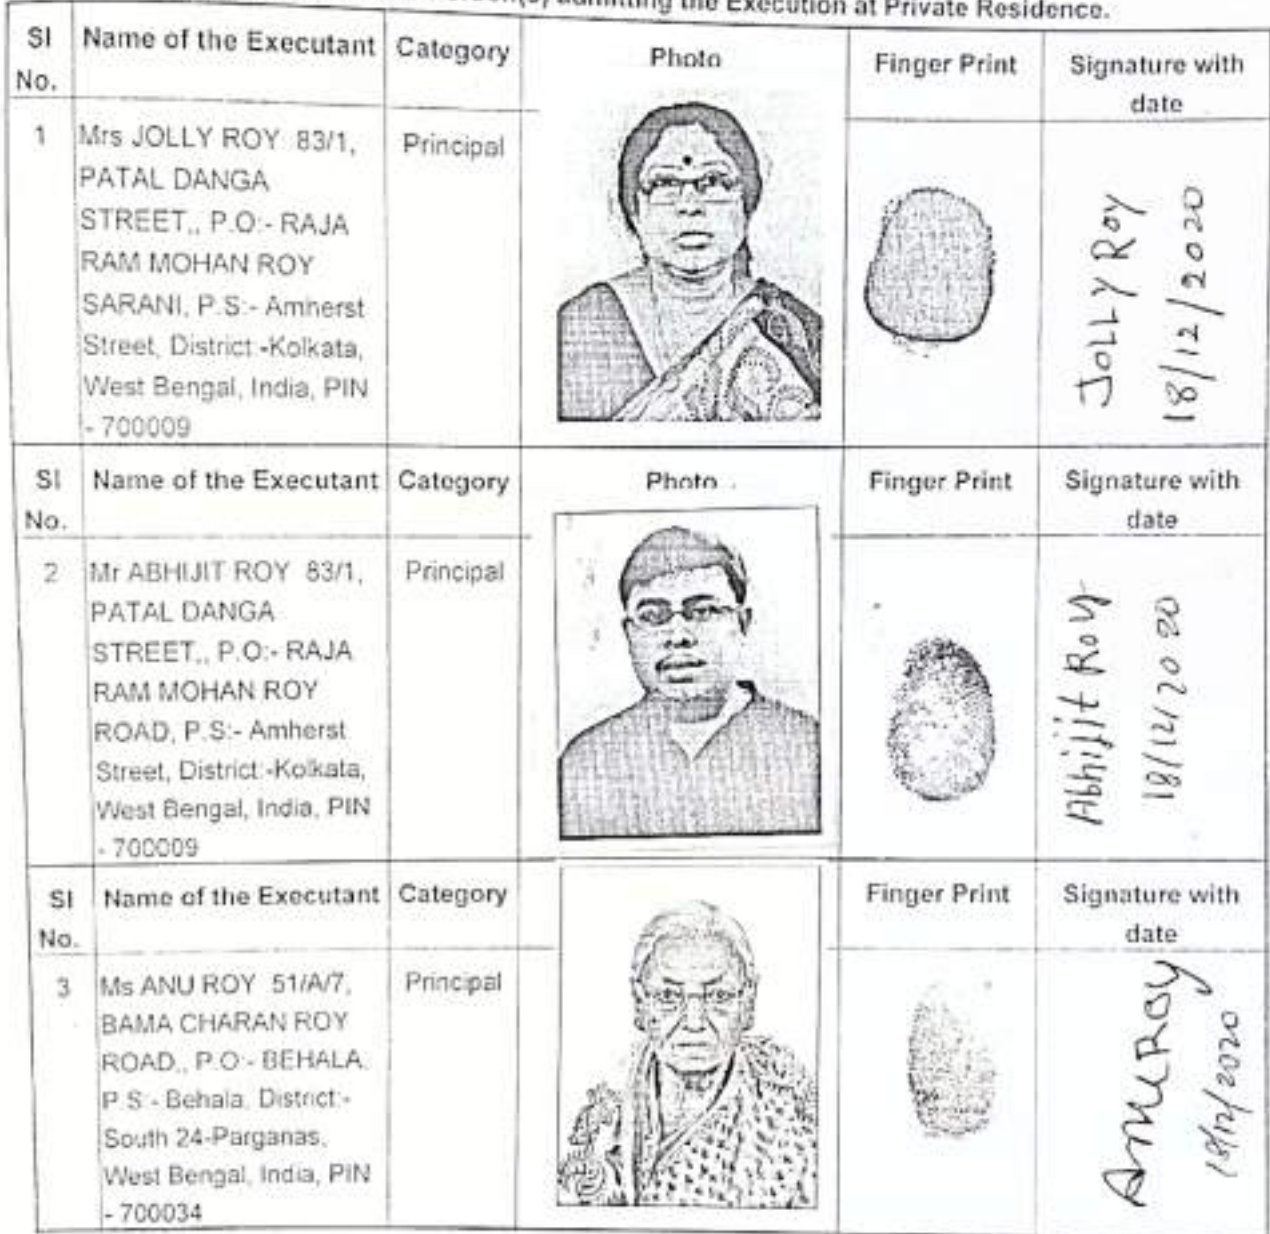 admitting the Execution at Private Residence.
Sl No. Name of the Executant Category Photo Finger Print Signature with date
1 Mrs JOLLY ROY 83/1, Principal
PATAL DANGA
STREET,, P.O:- RAJA
RAM MOHAN ROY
SARANI, P.S:- Amherst
Street, District:-Kolkata,
West Bengal, India, PIN
- 700009
JOLLY ROY
18/12/2020
Sl No. Name of the Executant Category Photo Finger Print Signature with date
2 Mr ABHIJIT ROY 83/1, Principal
PATAL DANGA
STREET,, P.O:- RAJA
RAM MOHAN ROY
ROAD, P.S:- Amherst
Street, District:-Kolkata,
West Bengal, India, PIN
- 700009
Abhijit Roy
18/12/2020
Sl No. Name of the Executant Category Finger Print Signature with date
3 Ms ANU ROY 51/A/7, Principal
BAMA CHARAN ROY
ROAD,, P.O:- BEHALA,
P.S:- Behala, District:-
South 24-Parganas,
West Bengal, India, PIN
- 700034
Anu Roy
18/12/2020